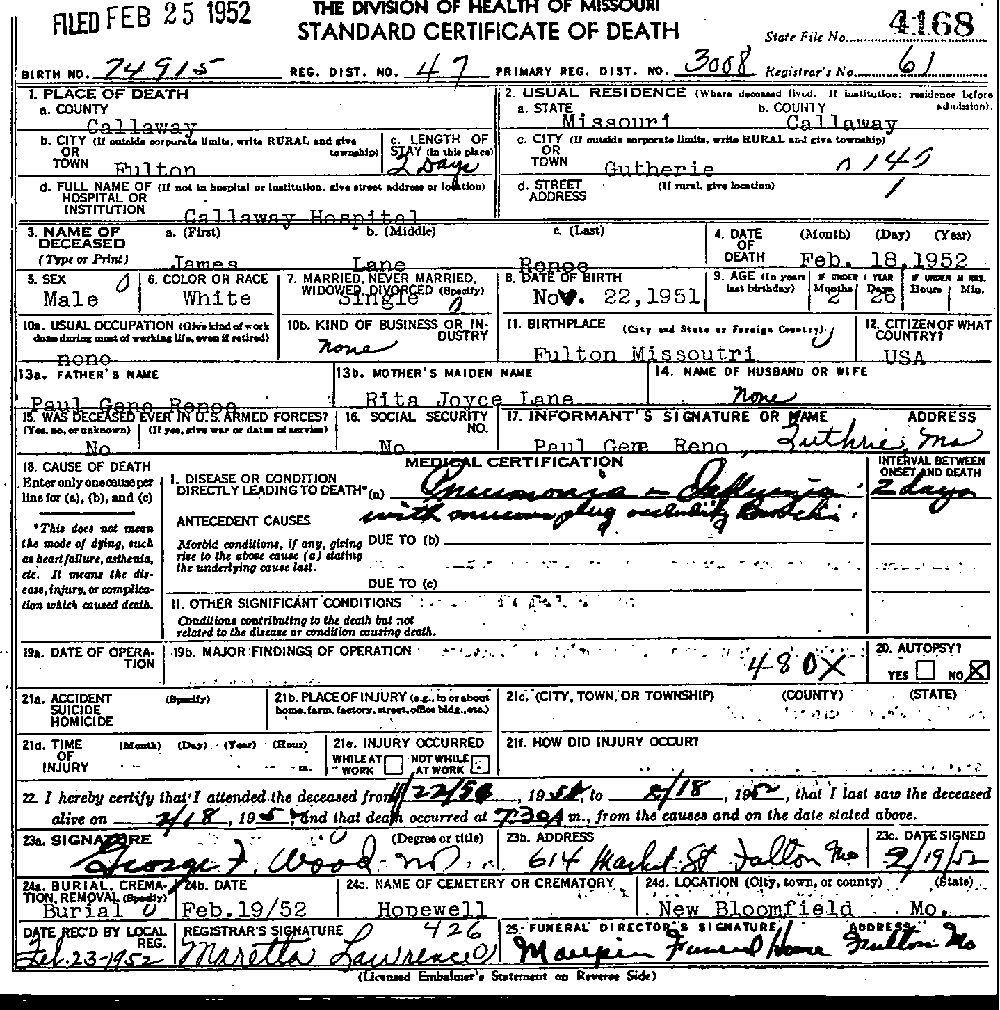 FILED FEB 25 1952
THE DIVISION OF HEALTH OF MISSOURI
STANDARD CERTIFICATE OF DEATH
State File No. 4168
BIRTH NO. 74915 REG. DIST. NO. 47 PRIMARY REG. DIST. NO. 3008 Registrar's No. 61
1. PLACE OF DEATH
a. COUNTY
Callaway
b. CITY (If outside corporate limits, write RURAL and give township)
OR
TOWN Fulton
c. LENGTH OF STAY (in this place)
2 Days
d. FULL NAME OF (If not in hospital or institution, give street address or location)
HOSPITAL OR
INSTITUTION Callaway Hospital
2. USUAL RESIDENCE (Where deceased lived. If institution: residence before admission).
a. STATE Missouri b. COUNTY Callaway
c. CITY (If outside corporate limits, write RURAL and give township)
OR
TOWN Gutherie 0145
d. STREET ADDRESS (If rural, give location) 1
3. NAME OF DECEASED (Type or Print)
a. (First) b. (Middle) c. (Last)
James Lane Renoe
4. DATE OF DEATH (Month) (Day) (Year)
Feb. 18,1952
5. SEX 0
Male
6. COLOR OR RACE
White
7. MARRIED, NEVER MARRIED, WIDOWED, DIVORCED (Specify)
Single 0
8. DATE OF BIRTH
Nov. 22,1951
9. AGE (In years last birthday) IF UNDER 1 YEAR Months Days IF UNDER 24 HRS. Hours Min.
2 26
10a. USUAL OCCUPATION (Give kind of work done during most of working life, even if retired)
none
10b. KIND OF BUSINESS OR INDUSTRY
none
11. BIRTHPLACE (City and State or Foreign Country)
Fulton Missoutri
12. CITIZEN OF WHAT COUNTRY?
USA
13a. FATHER'S NAME
Paul Gene Renoe
13b. MOTHER'S MAIDEN NAME
Rita Joyce Lane
14. NAME OF HUSBAND OR WIFE
none
15. WAS DECEASED EVER IN U.S. ARMED FORCES?
(Yes, no, or unknown) (If yes, give war or dates of service)
No
16. SOCIAL SECURITY NO.
No
17. INFORMANT'S SIGNATURE OR NAME ADDRESS
Paul Gem Reno Guthrie, Mo
18. CAUSE OF DEATH
Enter only one cause per line for (a), (b), and (c)
*This does not mean the mode of dying, such as heart failure, asthenia, etc. It means the disease, injury, or complication which caused death.
MEDICAL CERTIFICATION
INTERVAL BETWEEN ONSET AND DEATH
I. DISEASE OR CONDITION DIRECTLY LEADING TO DEATH* (a) Pneumonia - Influenza 2 days
with mucous plug occluding Bronchi.
ANTECEDENT CAUSES
Morbid conditions, if any, giving rise to the above cause (a) stating the underlying cause last.
DUE TO (b)
DUE TO (c)
II. OTHER SIGNIFICANT CONDITIONS
Conditions contributing to the death but not related to the disease or condition causing death.
19a. DATE OF OPERATION
19b. MAJOR FINDINGS OF OPERATION
480X
20. AUTOPSY?
YES NO X
21a. ACCIDENT SUICIDE HOMICIDE (Specify)
21b. PLACE OF INJURY (e.g., in or about home, farm, factory, street, office bldg., etc.)
21c. (CITY, TOWN, OR TOWNSHIP) (COUNTY) (STATE)
21d. TIME OF INJURY (Month) (Day) (Year) (Hour) m.
21e. INJURY OCCURRED
WHILE AT WORK NOT WHILE AT WORK
21f. HOW DID INJURY OCCUR?
22. I hereby certify that I attended the deceased from 11/22/51, 1951, to 2/18, 1952, that I last saw the deceased
alive on 2/18, 1952, and that death occurred at 7:30A m., from the causes and on the date stated above.
23a. SIGNATURE (Degree or title)
George F. Wood - MD.
23b. ADDRESS
614 Market St Fulton Mo
23c. DATE SIGNED
2/19/52
24a. BURIAL, CREMATION, REMOVAL (Specify)
Burial 0
24b. DATE
Feb.19/52
24c. NAME OF CEMETERY OR CREMATORY
Hopewell
24d. LOCATION (City, town, or county) (State)
New Bloomfield Mo.
DATE REC'D BY LOCAL REG.
Feb. 23-1952
REGISTRAR'S SIGNATURE 426
Maretta Lawrence
25. FUNERAL DIRECTOR'S SIGNATURE ADDRESS
Maupin Funeral Home Fulton Mo
(Licensed Embalmer's Statement on Reverse Side)